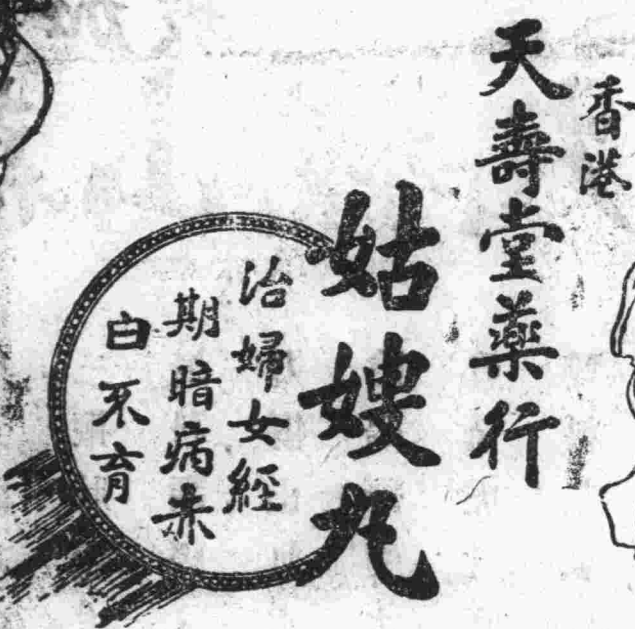 香港
天壽堂藥行
姑嫂丸
治婦女經
期暗病赤
白不育